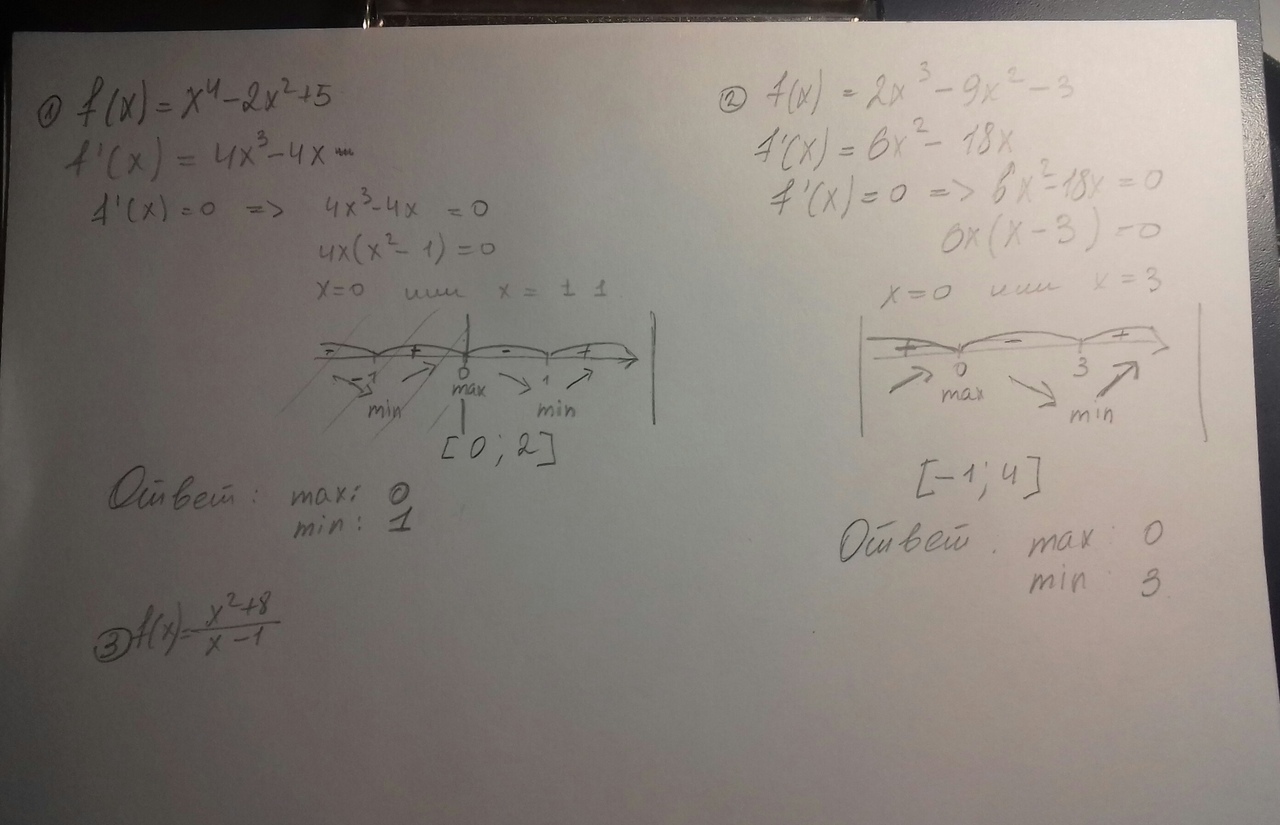 ① f(x) = x⁴ - 2x² + 5
f'(x) = 4x³ - 4x
f'(x) = 0 => 4x³ - 4x = 0
4x(x² - 1) = 0
x = 0 или x = ± 1
- + - +
-1 0 1
min max min
[0; 2]
Ответ: max: 0
min: 1
② f(x) = 2x³ - 9x² - 3
f'(x) = 6x² - 18x
f'(x) = 0 => 6x² - 18x = 0
6x(x - 3) = 0
x = 0 или x = 3
+ - +
0 3
max min
[-1; 4]
Ответ. max: 0
min 3
③ f(x) = (x² + 8)/(x - 1)